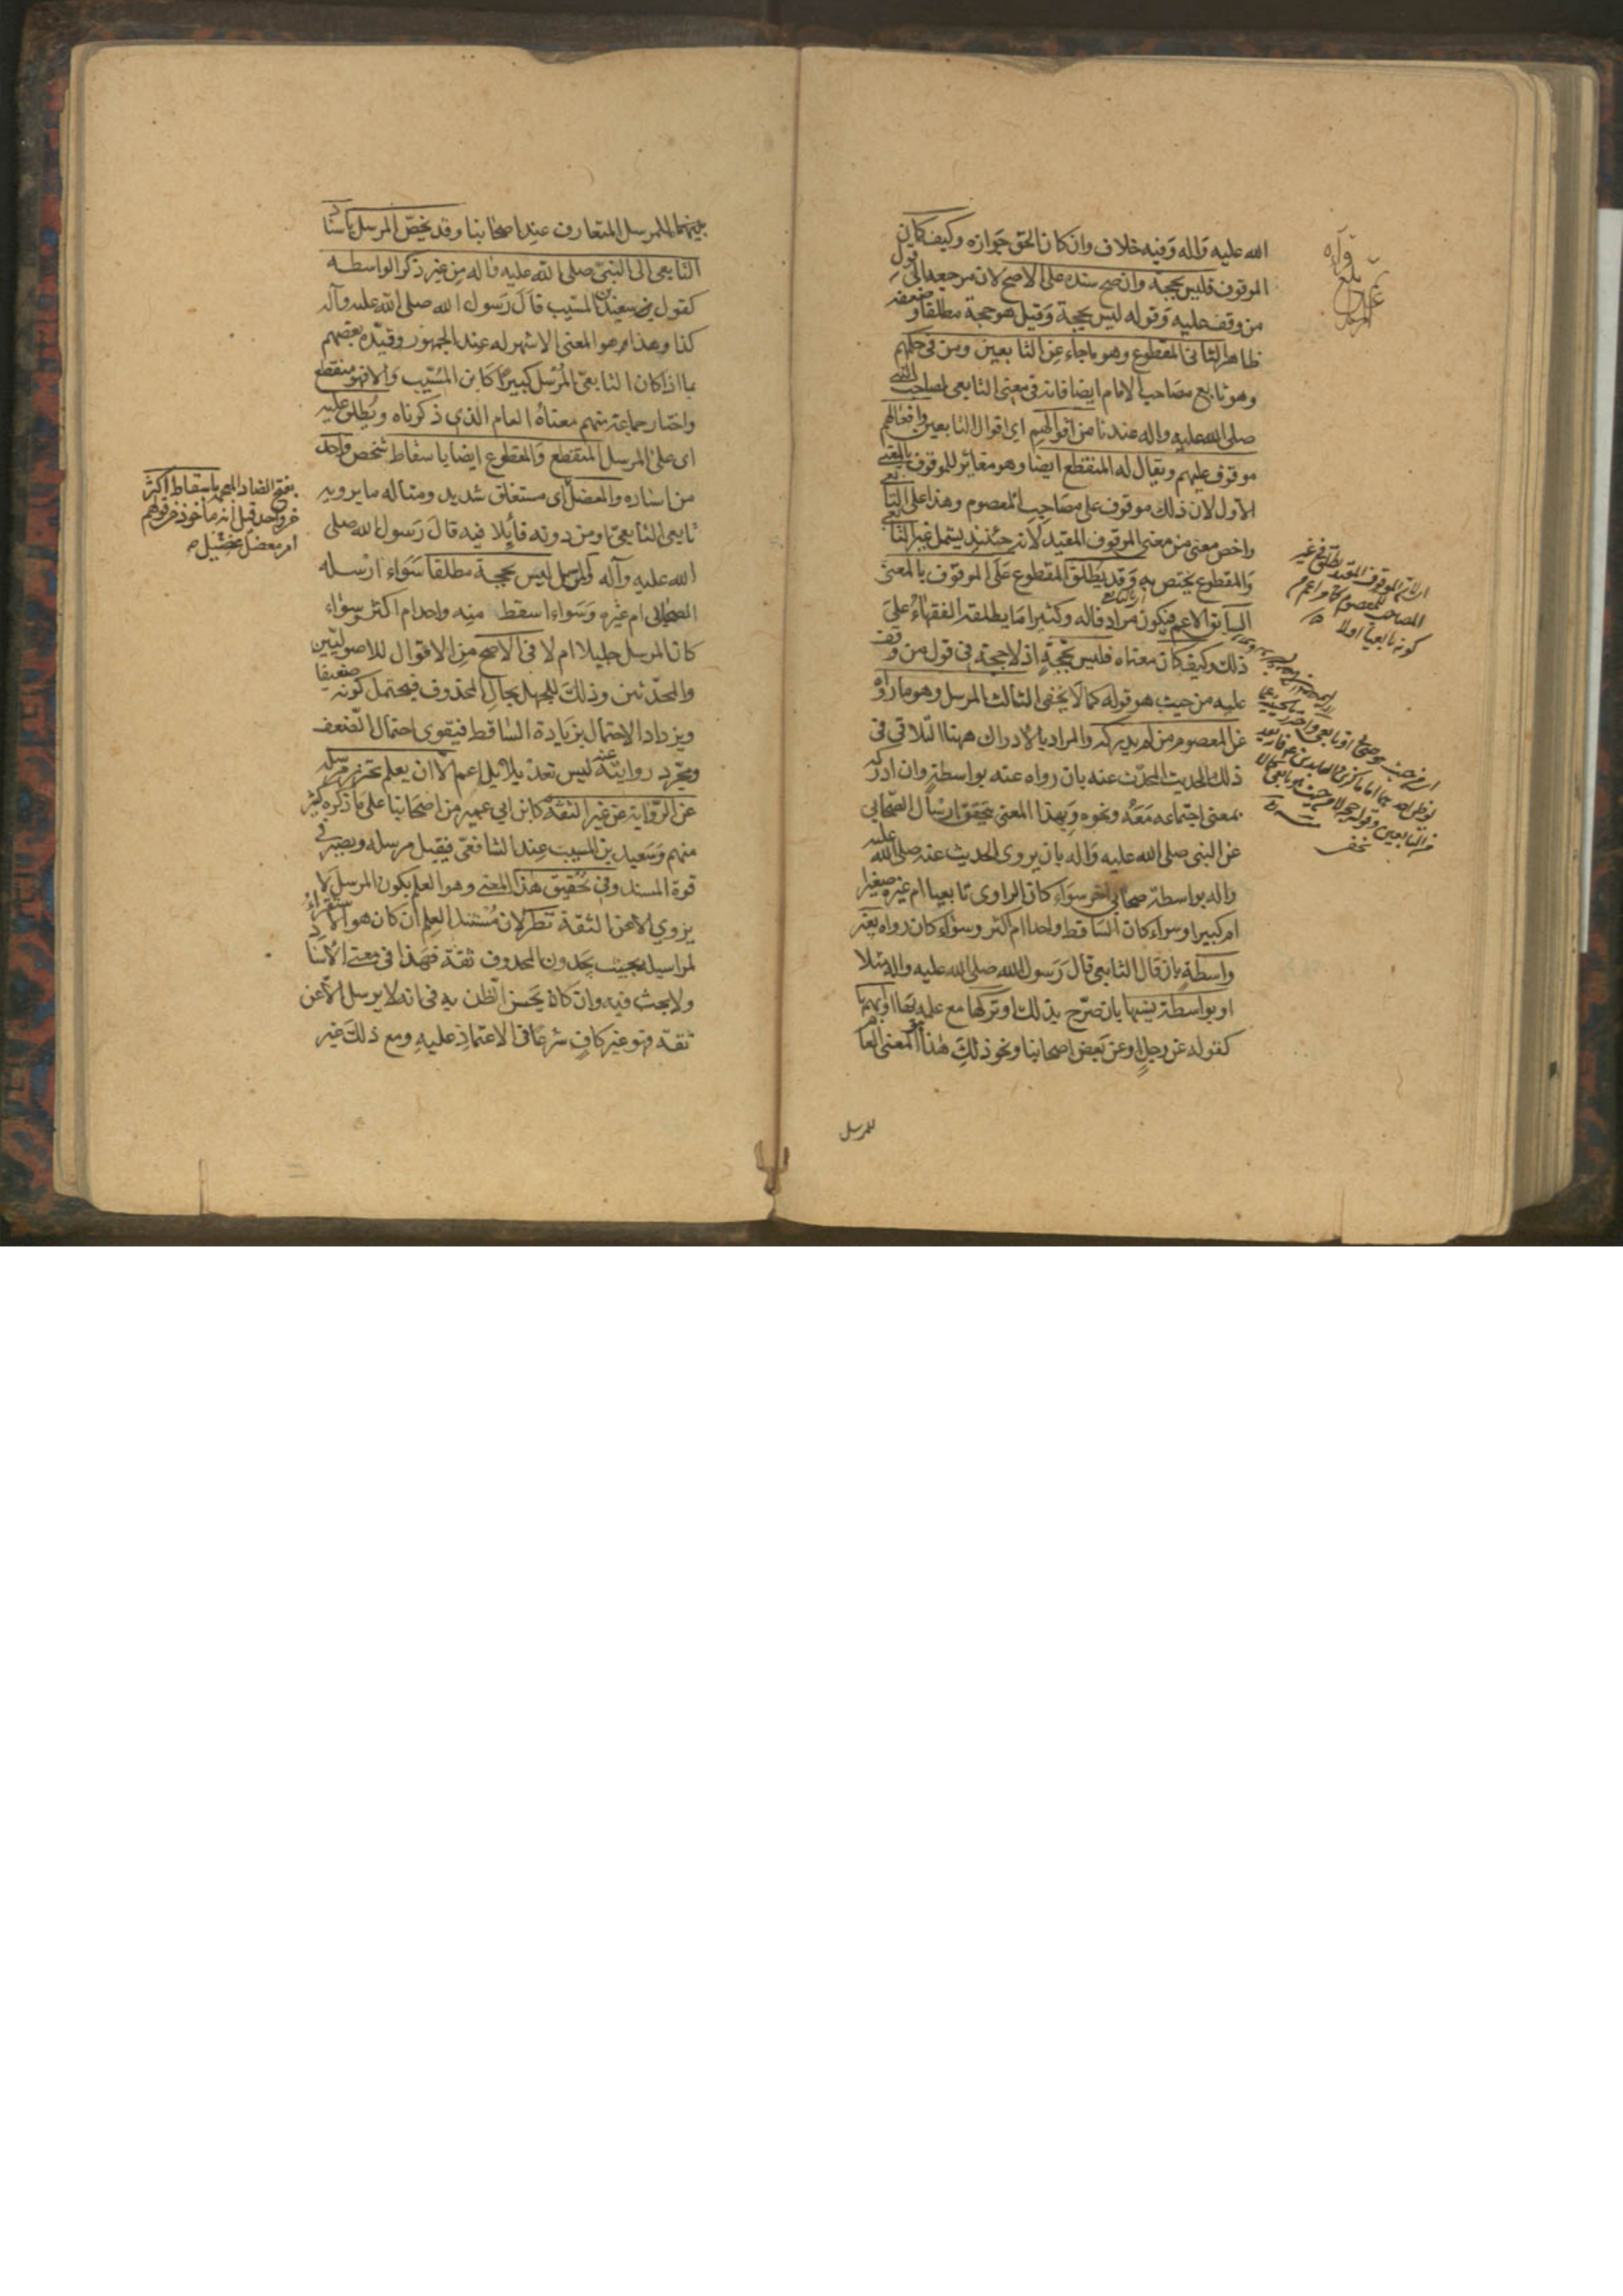 الله عليه وَاله وَفيه خلاف وان كان الحق جَوازه وكيف كان
الموقوف فليس بحجة وان صح سنده على الاصح لان مرجعه الى قول
من وقف عليه وَقوله ليس بحجة وَقيل هو حجة مطلقا وضعفه
ظاهر الثانى المقطوع وهو ما جاء عن التابعين ومن فى حكمهم
وهو تابع مصَاحب الامام ايضا فانه فى معنى التابعى لصاحب النبى
صلى الله عليه واله عندنا من اقوالهم اى اقوال التابعين وافعالهم
موقوف عليهم ويقال له المنقطع ايضا وهو مغاير للموقوف بالمعنى
الاول لان ذلك موقوف على مصَاحِب المعصوم وهذا على التابعى
واخص معنى من معنى الموقوف المقيد لانه حينئذ يشمل غير التابعى
وَالمقطوع يختص به وَقد يُطلق المقطوع عَلَى الموقوف بالمعنى
السابق الاعم فيكون مرادفا له وكثيرا مَا يطلقه الفقهاءُ عَلى
ذلك وكيف كان معناه فليس بحُجةٍ اذ لا حجة فى قول من وقف
عليه من حيث هو قوله كما لا يخفى الثالث المرسل وهو ما رواه
عن المعصوم من لم يدركه والمراد بالادراك ههنا التلاقى فى
ذلك الحديث المحدّث عنه بان رواه عنه بواسطةٍ وان ادركه
بمعنى اجتماعه مَعَهُ ونحوه وَبهذا المعنى يتحقق ارسَال الصّحابي
عن النبى صلى الله عليه وَاله بان يروى الحديث عنه صلى الله عليه
واله بواسطة صحابي اخر سوَاء كان الراوى تابعيا ام غيره صغيرا
ام كبيرا وسواء كان السَاقط واحدا ام اكثر وسوَاء كان رواه بغير
واسطَةٍ بان قال التابعى قال رَسول الله صلى الله عليه واله مثلا
او بواسطة نسيها بان صرّح بذلك او تركها مع علمه بها او ابهمها
كقوله عن رجلٍ او عن بَعض اصحابنا ونحو ذلكَ هٰذا هو المعنى العام
للمرسل
بينهما للمرسل المتعارف عند اصحابنا وقد يخصّ المرسل باسناد
التابعى الى النبىّ صلى الله عليه واله من غير ذكر الواسطه
كقول سعيد بن المسَيب قال رَسول الله صلى الله عليه وآله
كذا وهذا هو المعنى الاشهر له عند الجمهور وقيّده بعضهم
بما اذا كان التابعىّ المُرسِل كبيرًا كابن المُسَيّب وَالا فهو منقطع
واختار جماعة منهم معناهُ العام الذى ذكرناه ويُطلق عليه
اى على المرسل المنقطع وَالمقطوع ايضا باسقاط شخص واحد
من اسناده والمعضل اى مستغلق شديد ومثاله ما يرويه
تابعى التابعىّ او من دونه قائِلا فيه قالَ رَسول الله صلى
الله عليه وآله والمرسل ليس بحجة مطلقا سَوَاء ارسَله
الصحابى ام غيره وَسَواء اسقط منه واحد ام اكثر وسوَاء
كان المرسل جليلا ام لا فى الاصح من الاقوال للاصوليّين
والمحدّثين وذلك للجهل بحال المحذوف فيحتمل كونه ضعيفا
ويزداد الاحتمال بزيَادة السَاقط فيقوى احتمال الضعف
ومجرّد روايته عنه ليس تعديلا بل اعم الّا ان يعلم تحرّز مرسله
عن الرّواية عن غير الثقة كابن ابى عمير من اصحَابنا على مَا ذكره كثير
منهم وَسَعيد بن المسيب عند الشافعىّ فيقبل مرسله ويصير فى
قوة المسند وفى تحقيق هذا المعنى وهو العلم بكون المرسل لا
يروي الا عن الثقة نظر لان مُستند العِلم ان كان هو الاستقراءُ
لمراسيله بحيث يجدون المحذوف ثقة فهَذا فى معنى الاسناد
ولا بحث فيه وان كان يحسن الظن به فى انه لا يرسل الا عن
ثقة فهو غير كافٍ شرعًا فى الاعتمادِ عليهِ ومع ذلكَ غير
بفتح الضاد المعجمة باسقاط اكثر
من واحد قيل انه مأخوذ من قولهم
امر معضل